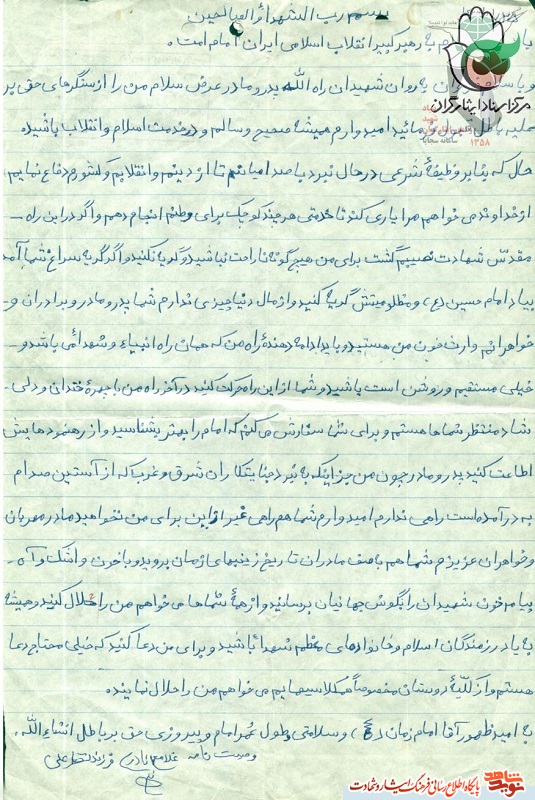 بسم رب الشهدا و الصالحین
با سلام به رهبر کبیر انقلاب اسلامی ایران امام امت
و با سلام به روان شهیدان راه الله پدر و مادر عرض سلام من را از سنگرهای حق بر
علیه باطل قبول فرمائید امیدوارم همیشه صحیح و سالم و در خدمت اسلام و انقلاب باشید
حال که بنا بر وظیفهٔ شرعی در حال نبرد با صدامیانم تا از دینم و انقلابم و کشورم دفاع نمایم
از خداوند می خواهم مرا یاری کند تا خدمتی هر چند کوچک برای وطنم انجام دهم و اگر در این راه
مقدس شهادت نصیبم گشت برای من هیچ گونه ناراحت نباشید و گریه نکنید و اگر گریه سراغ شما آمد
بیاد امام حسین (ع) و مظلومیتش گریه کنید و از مال دنیا چیزی ندارم شما پدر و مادر و برادران و
خواهرانم وارث خون من هستید و باید ادامه دهندهٔ راه من که همان راه انبیاء و شهدا می باشد و
خیلی مستقیم و روشن است باشید و شما از این راه حرکت کنید در آخر راه من با چهرهٔ خندان و دلی
شاد منتظر شماها هستم و برای شما سفارش می کنم که امام را بهتر بشناسید و از رهنمودهایش
اطاعت کنید پدر و مادر چون من جز اینکه به نبرد جنایتکاران شرق و غرب که از آستین صدام
به در آمده است راهی ندارم امیدوارم شما هم راهی غیر از این برای من نخواهید مادر مهربان
و خواهران عزیزم شما هم با صف مادران تاریخ زینبهای زمان بروید و با خون و اشک و آه
پیام خون شهیدان را بگوش جهانیان برسانید و از همهٔ شماها می خواهم من را حلال کنید و همیشه
به یاد رزمندگان اسلام و خانوادهای معظم شهدا باشید و برای من دعا کنید که خیلی محتاج دعا
هستم و از کلیهٔ دوستان مخصوصاً همکلاسیهایم می خواهم من را حلال نمایند
به امید ظهور آقا امام زمان (عج) و سلامتی و طول عمر امام و پیروزی حق بر باطل انشاء الله
وصیت نامه غلام
فرزند
مرکز اسناد ایثارگران
۱۳۵۸
نوید شاهد
پایگاه اطلاع رسانی فرهنگ ایثار و شهادت